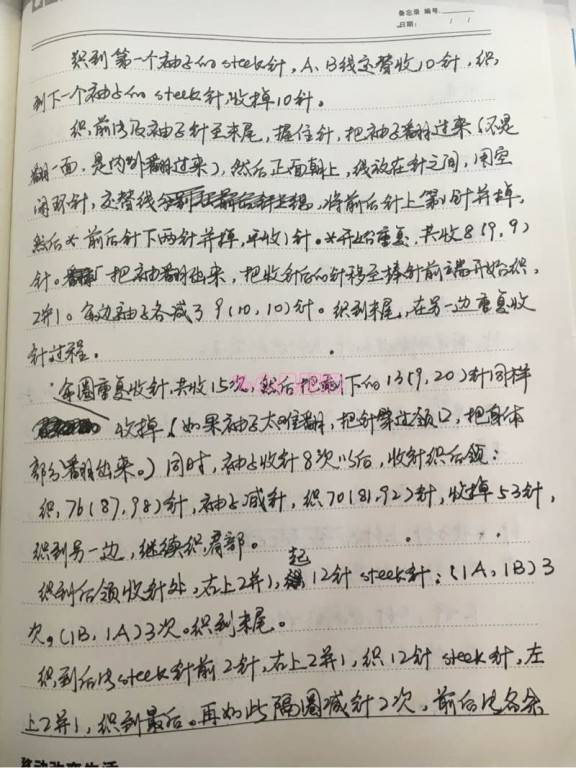 备忘录 编号
日期: / /
织到第一个袖子的steek针，A、B线交替收10针，织
到下一个袖子的steek针，收掉10针。
织，前片及袖子针至末尾，握住针，把袖子翻过来（不是
翻一面，是内外翻过来），然后正面朝上，线放在针之间，用空
闲环针，交替线，将前后针上第1针并掉，
然后*前后针下两针并掉，平收1针。*开始重复，共收8(9,9)
针。把袖翻出来，把收针后的针移至棒针前端开始织，
2并1。每边袖子各减了9(10,10)针。织到末尾，在另一边重复收
针过程。
每圈重复收针，共收15次，然后把剩下的13(9,20)针同样
收掉（如果袖子太难翻，把针穿过领口，把身体
部分翻出来。）同时，袖子收针8次以后，收针织后领：
织，76(87,98)针，袖子减针，织70(81,92)针，收掉53针，
织到另一边，继续织，肩部。
织到后领收针处，右上2并1，起12针steek针：(1A,1B)3
次，(1B,1A)3次。织到末尾。
织到后片steek针前2针，右上2并1，织12针steek针，左
上2并1，织到最后。再如此隔圈减针2次，前后片各余